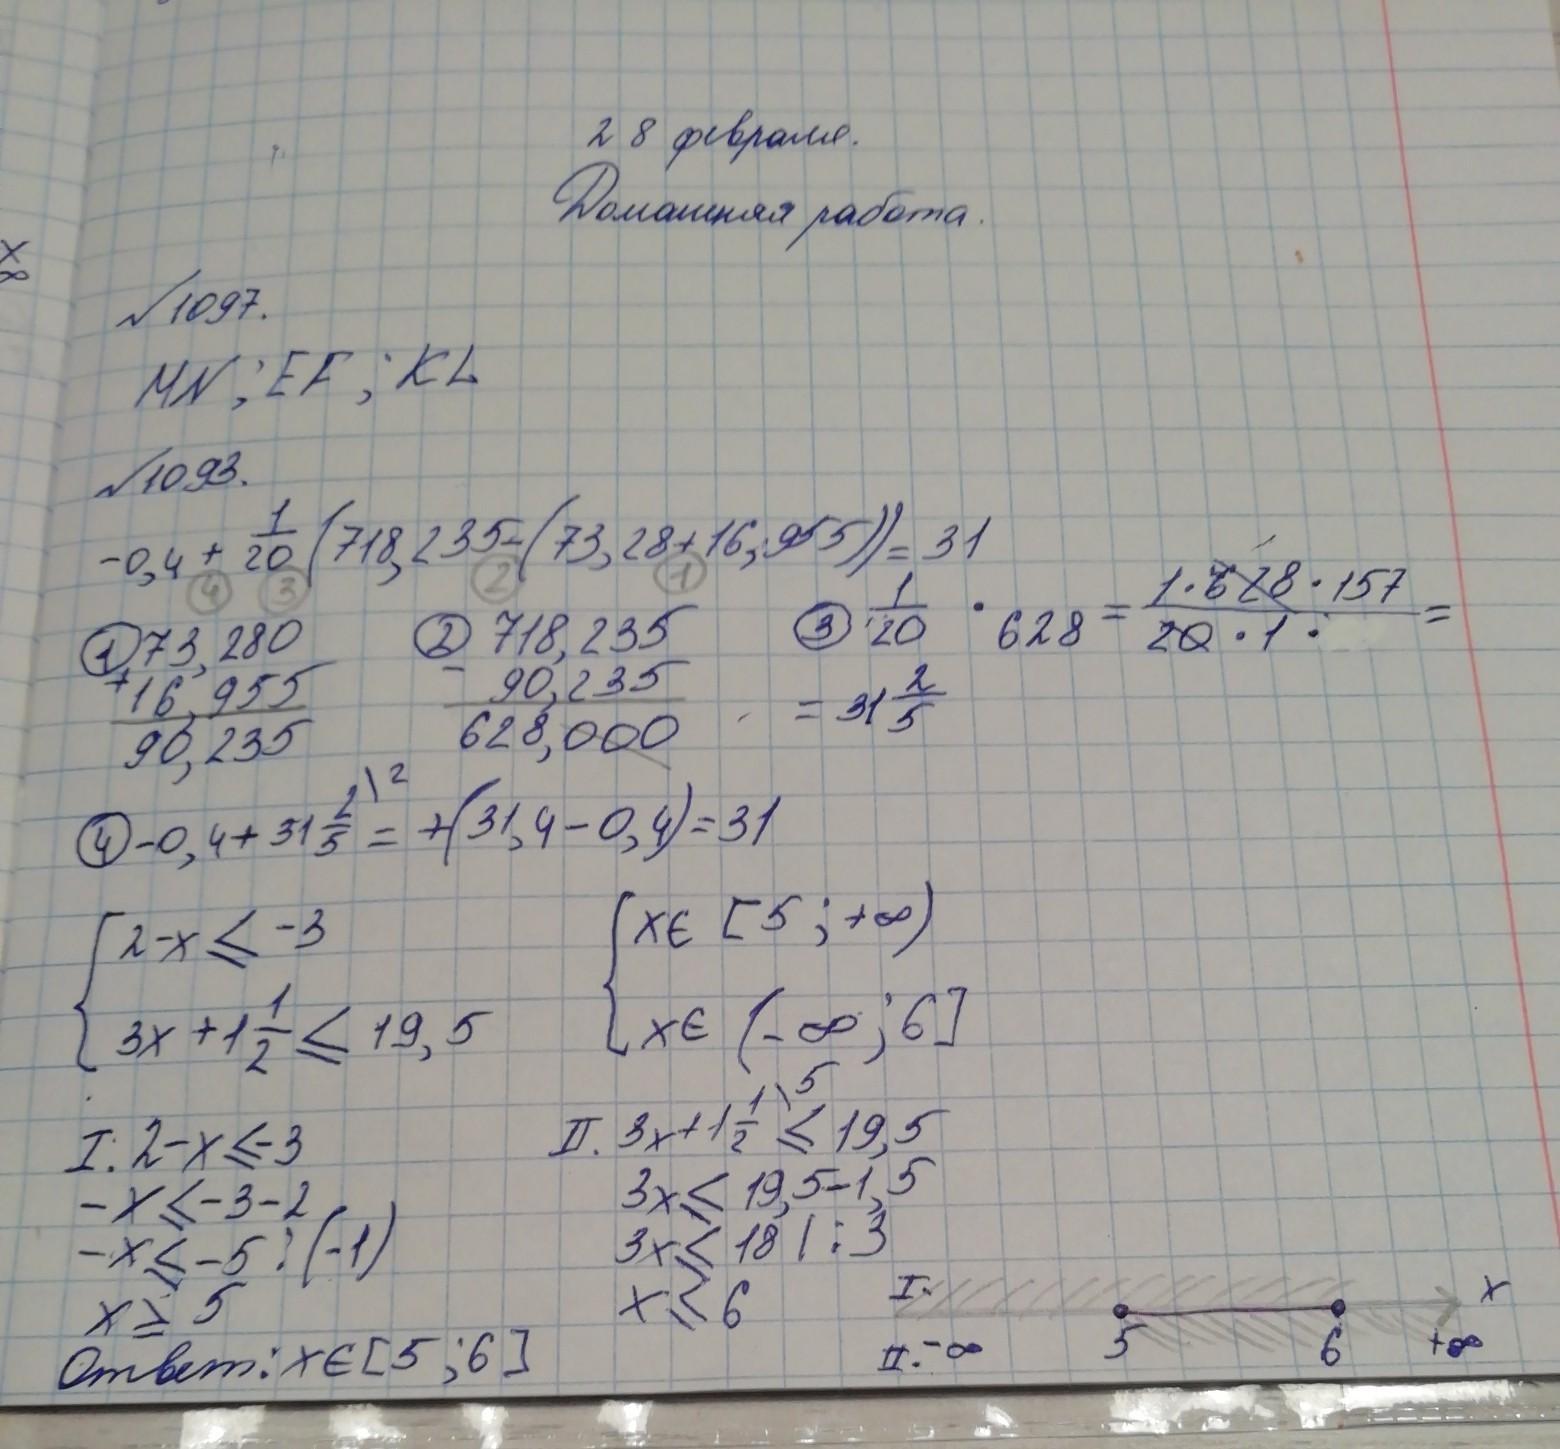 28 февраля.
Домашняя работа.
№1097.
MN; EF; KL
№1093.
-0,4 + 1/20 (718,235-(73,28+16,955)) = 31
④ ③ ② ①
① 73,280
+16,955
90,235
② 718,235
- 90,235
628,000
③ 1/20 · 628 = 1·628·157/20·1· =
= 31 2/5
④ -0,4+31 2/5 \2 = +(31,4-0,4)=31
{ 2-x ⩽ -3
3x+1 1/2 ⩽ 19,5
{ x∈ [5; +∞)
x∈ (-∞; 6]
I: 2-x⩽-3
-x⩽-3-2
-x⩽-5 :(-1)
x ≥ 5
II. 3x+1 1/2 \5 ⩽ 19,5
3x⩽ 19,5-1,5
3x⩽ 18 | :3
x ⩽ 6
I: x
II: -∞ 5 6 +∞
Ответ: x∈[5;6]
x
∞